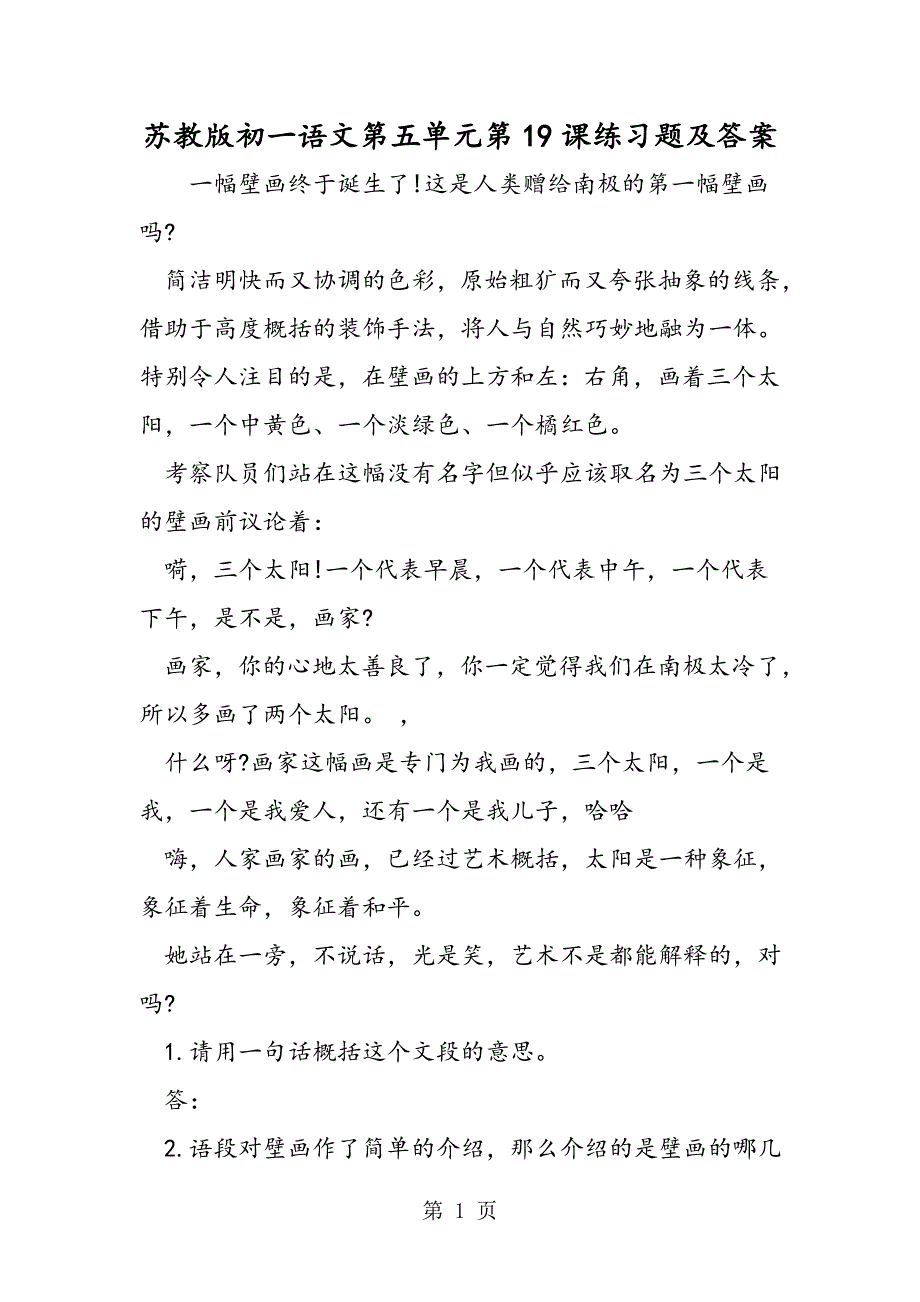 苏教版初一语文第五单元第19课练习题及答案
一幅壁画终于诞生了!这是人类赠给南极的第一幅壁画
吗?
简洁明快而又协调的色彩，原始粗犷而又夸张抽象的线条，
借助于高度概括的装饰手法，将人与自然巧妙地融为一体。
特别令人注目的是，在壁画的上方和左：右角，画着三个太
阳，一个中黄色、一个淡绿色、一个橘红色。
考察队员们站在这幅没有名字但似乎应该取名为三个太阳
的壁画前议论着：
嗬，三个太阳!一个代表早晨，一个代表中午，一个代表
下午，是不是，画家?
画家，你的心地太善良了，你一定觉得我们在南极太冷了，
所以多画了两个太阳。 ，
什么呀?画家这幅画是专门为我画的，三个太阳，一个是
我，一个是我爱人，还有一个是我儿子，哈哈
嗨，人家画家的画，已经过艺术概括，太阳是一种象征，
象征着生命，象征着和平。
她站在一旁，不说话，光是笑，艺术不是都能解释的，对
吗?
1.请用一句话概括这个文段的意思。
答：
2.语段对壁画作了简单的介绍，那么介绍的是壁画的哪几
第 1 页